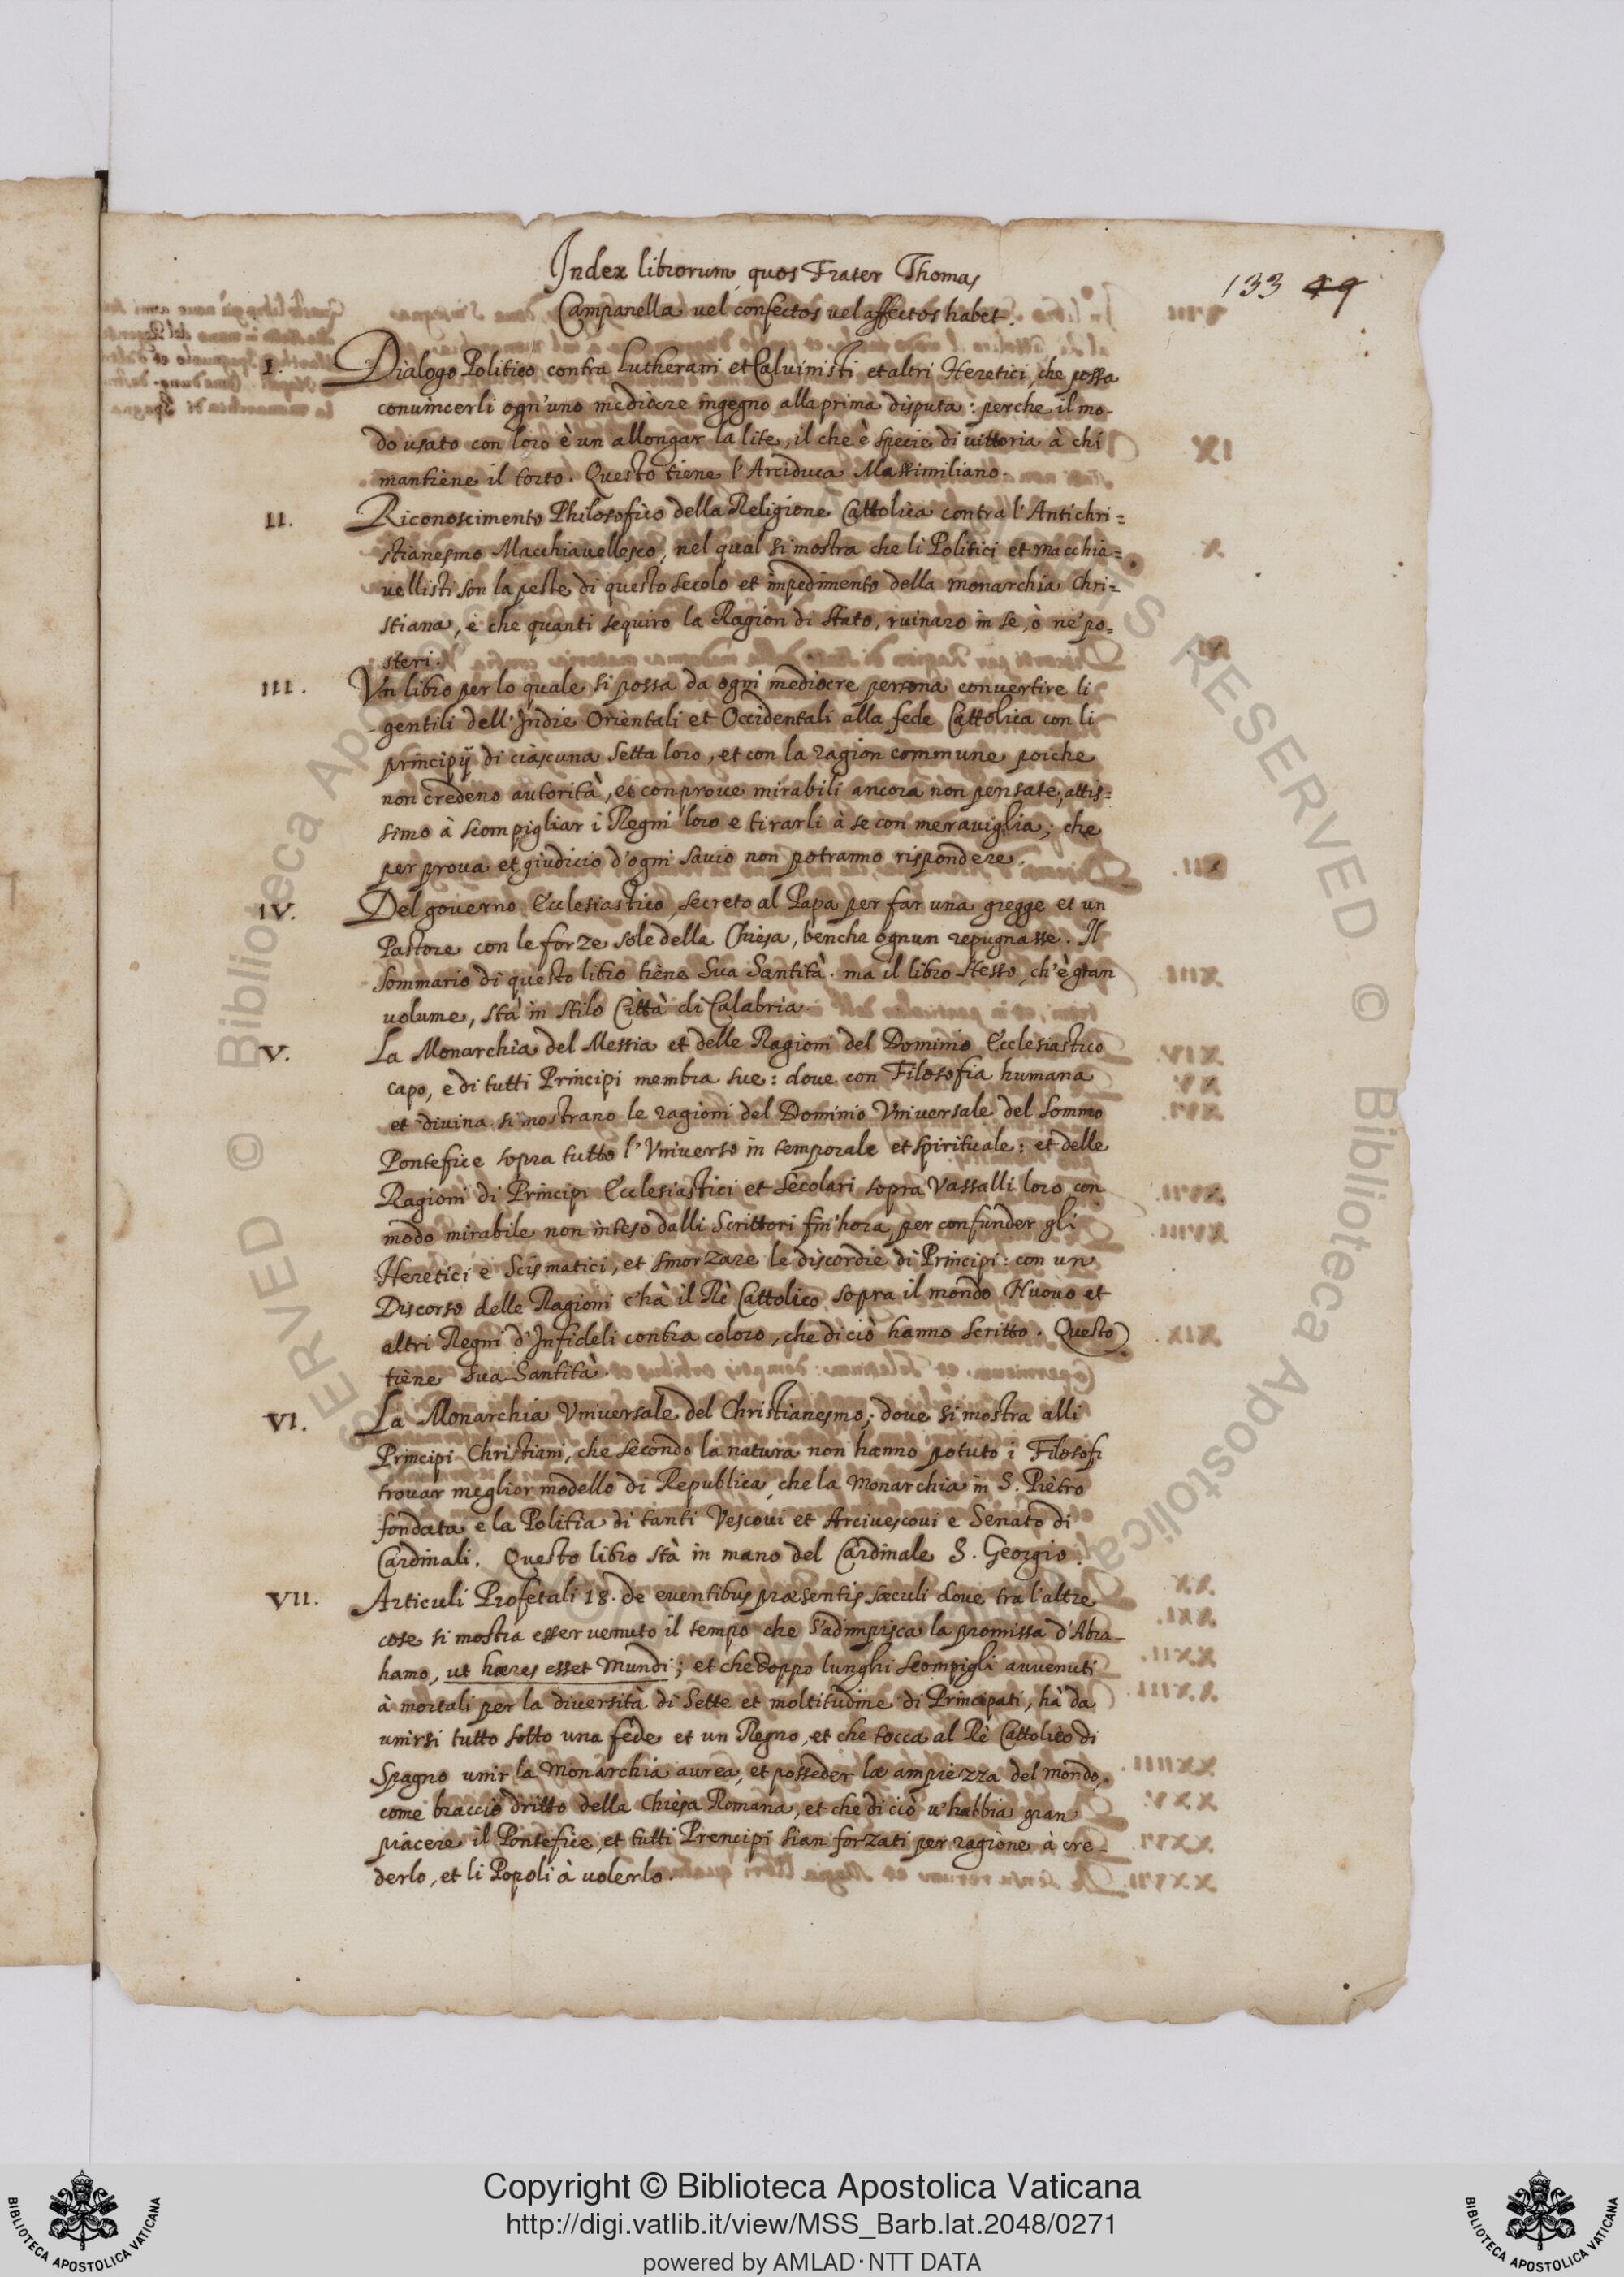 Index librorum, quos Frater Thomas
Campanella vel confectos vel affectos habet.
133 49
I. Dialogo Politico contra Lutherani et Calvinisti et altri Heretici, che possa
convincerli ogn'uno mediocre ingegno alla prima disputa: perche il mo-
do usato con loro è un allongar la lite, il che è specie di vittoria à chi
mantiene il torto. Questo tiene l'Arciduca Massimiliano.
II. Riconoscimento Philosofico della Religione Cattolica contra l'Antichri=
stianesmo Macchiavellesco, nel qual si mostra che li Politici et macchia=
vellisti son la peste di questo secolo et impedimento della monarchia Chri=
stiana, e che quanti sequiro la Ragion di Stato, ruinaro in se, ò ne' po=
steri.
III. Vn libro per lo quale si possa da ogni mediocre persona convertire li
gentili dell'Indie Orientali et Occidentali alla fede Cattolica con li
principij di ciascuna setta loro, et con la ragion commune poiche
non credeno autorità, et con prove mirabili ancora non pensate, attis=
simo à scompigliar i Regni loro e tirarli à se con meraviglia; che
per prova et giudicio d'ogni savio non potranno rispondere.
IV. Del governo Ecclesiastico, secreto al Papa per far una gregge et un
Pastore con le forze sole della Chiesa, benche ognun repugnasse. Il
Sommario di questo libro tiene Sua Santità. ma il libro stesso, ch'è gran
volume, stà in Stilo Città di Calabria.
V. La Monarchia del Messia et delle Ragioni del Dominio Ecclesiastico
capo, e di tutti Principi membra sue: dove con Filosofia humana
et divina si mostrano le ragioni del Dominio Vniversale del Sommo
Pontefice sopra tutto l'Vniverso in temporale et spirituale: et delle
Ragioni di Principi Ecclesiastici et Secolari sopra Vassalli loro con
modo mirabile non inteso dalli Scrittori fin'hora, per confunder gli
Heretici e Scismatici, et smorzare le discordie di Principi: con un
Discorso delle Ragioni c'hà il Rè Cattolico sopra il mondo Nuovo et
altri Regni d'Infideli contra coloro, che di ciò hanno scritto. Questo
tiene Sua Santità.
VI. La Monarchia Vniversale del Christianesmo; dove si mostra alli
Principi Christiani, che secondo la natura non hanno potuto i Filosofi
trovar meglior modello di Republica, che la Monarchia in S. Pietro
fondata e la Politia di tanti Vescovi et Arcivescovi e Senato di
Cardinali. Questo libro stà in mano del Cardinale S. Georgio.
VII. Articuli Profetali 18. de eventibus præsentis sæculi dove tra l'altre
cose si mostra esser venuto il tempo che s'adimpisca la promissa d'Abra-
hamo, ut hæres esset Mundi; et che doppo lunghi scompigli avvenuti
à mortali per la diversità di Sette et moltitudine di Principati, hà da
unirsi tutto sotto una fede et un Regno, et che tocca al Rè Cattolico di
Spagno unir la Monarchia aurea, et posseder la ampiezza del mondo,
come braccio dritto della Chiesa Romana, et che di ciò n'habbia gran
piacere il Pontefice, et tutti Prencipi sian forzati per ragione à cre-
derlo, et li Popoli à volerlo.
Copyright © Biblioteca Apostolica Vaticana
http://digi.vatlib.it/view/MSS_Barb.lat.2048/0271
powered by AMLAD·NTT DATA
BIBLIOTECA APOSTOLICA VATICANA
BIBLIOTECA APOSTOLICA VATICANA